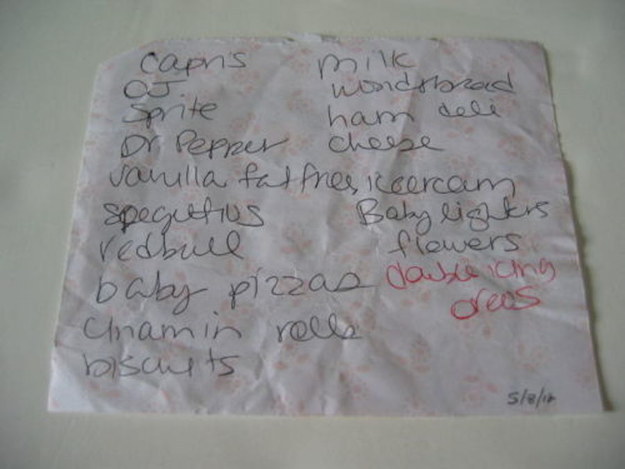 capris
milk
OJ
wondrbread
Sprite
ham deli
Dr Pepper
cheese
vanilla fat free icecream
spegettius
Baby lighters
redbull
flowers
baby pizzas
double icing
oreos
cinamin rolls
biscuits
5/8/12